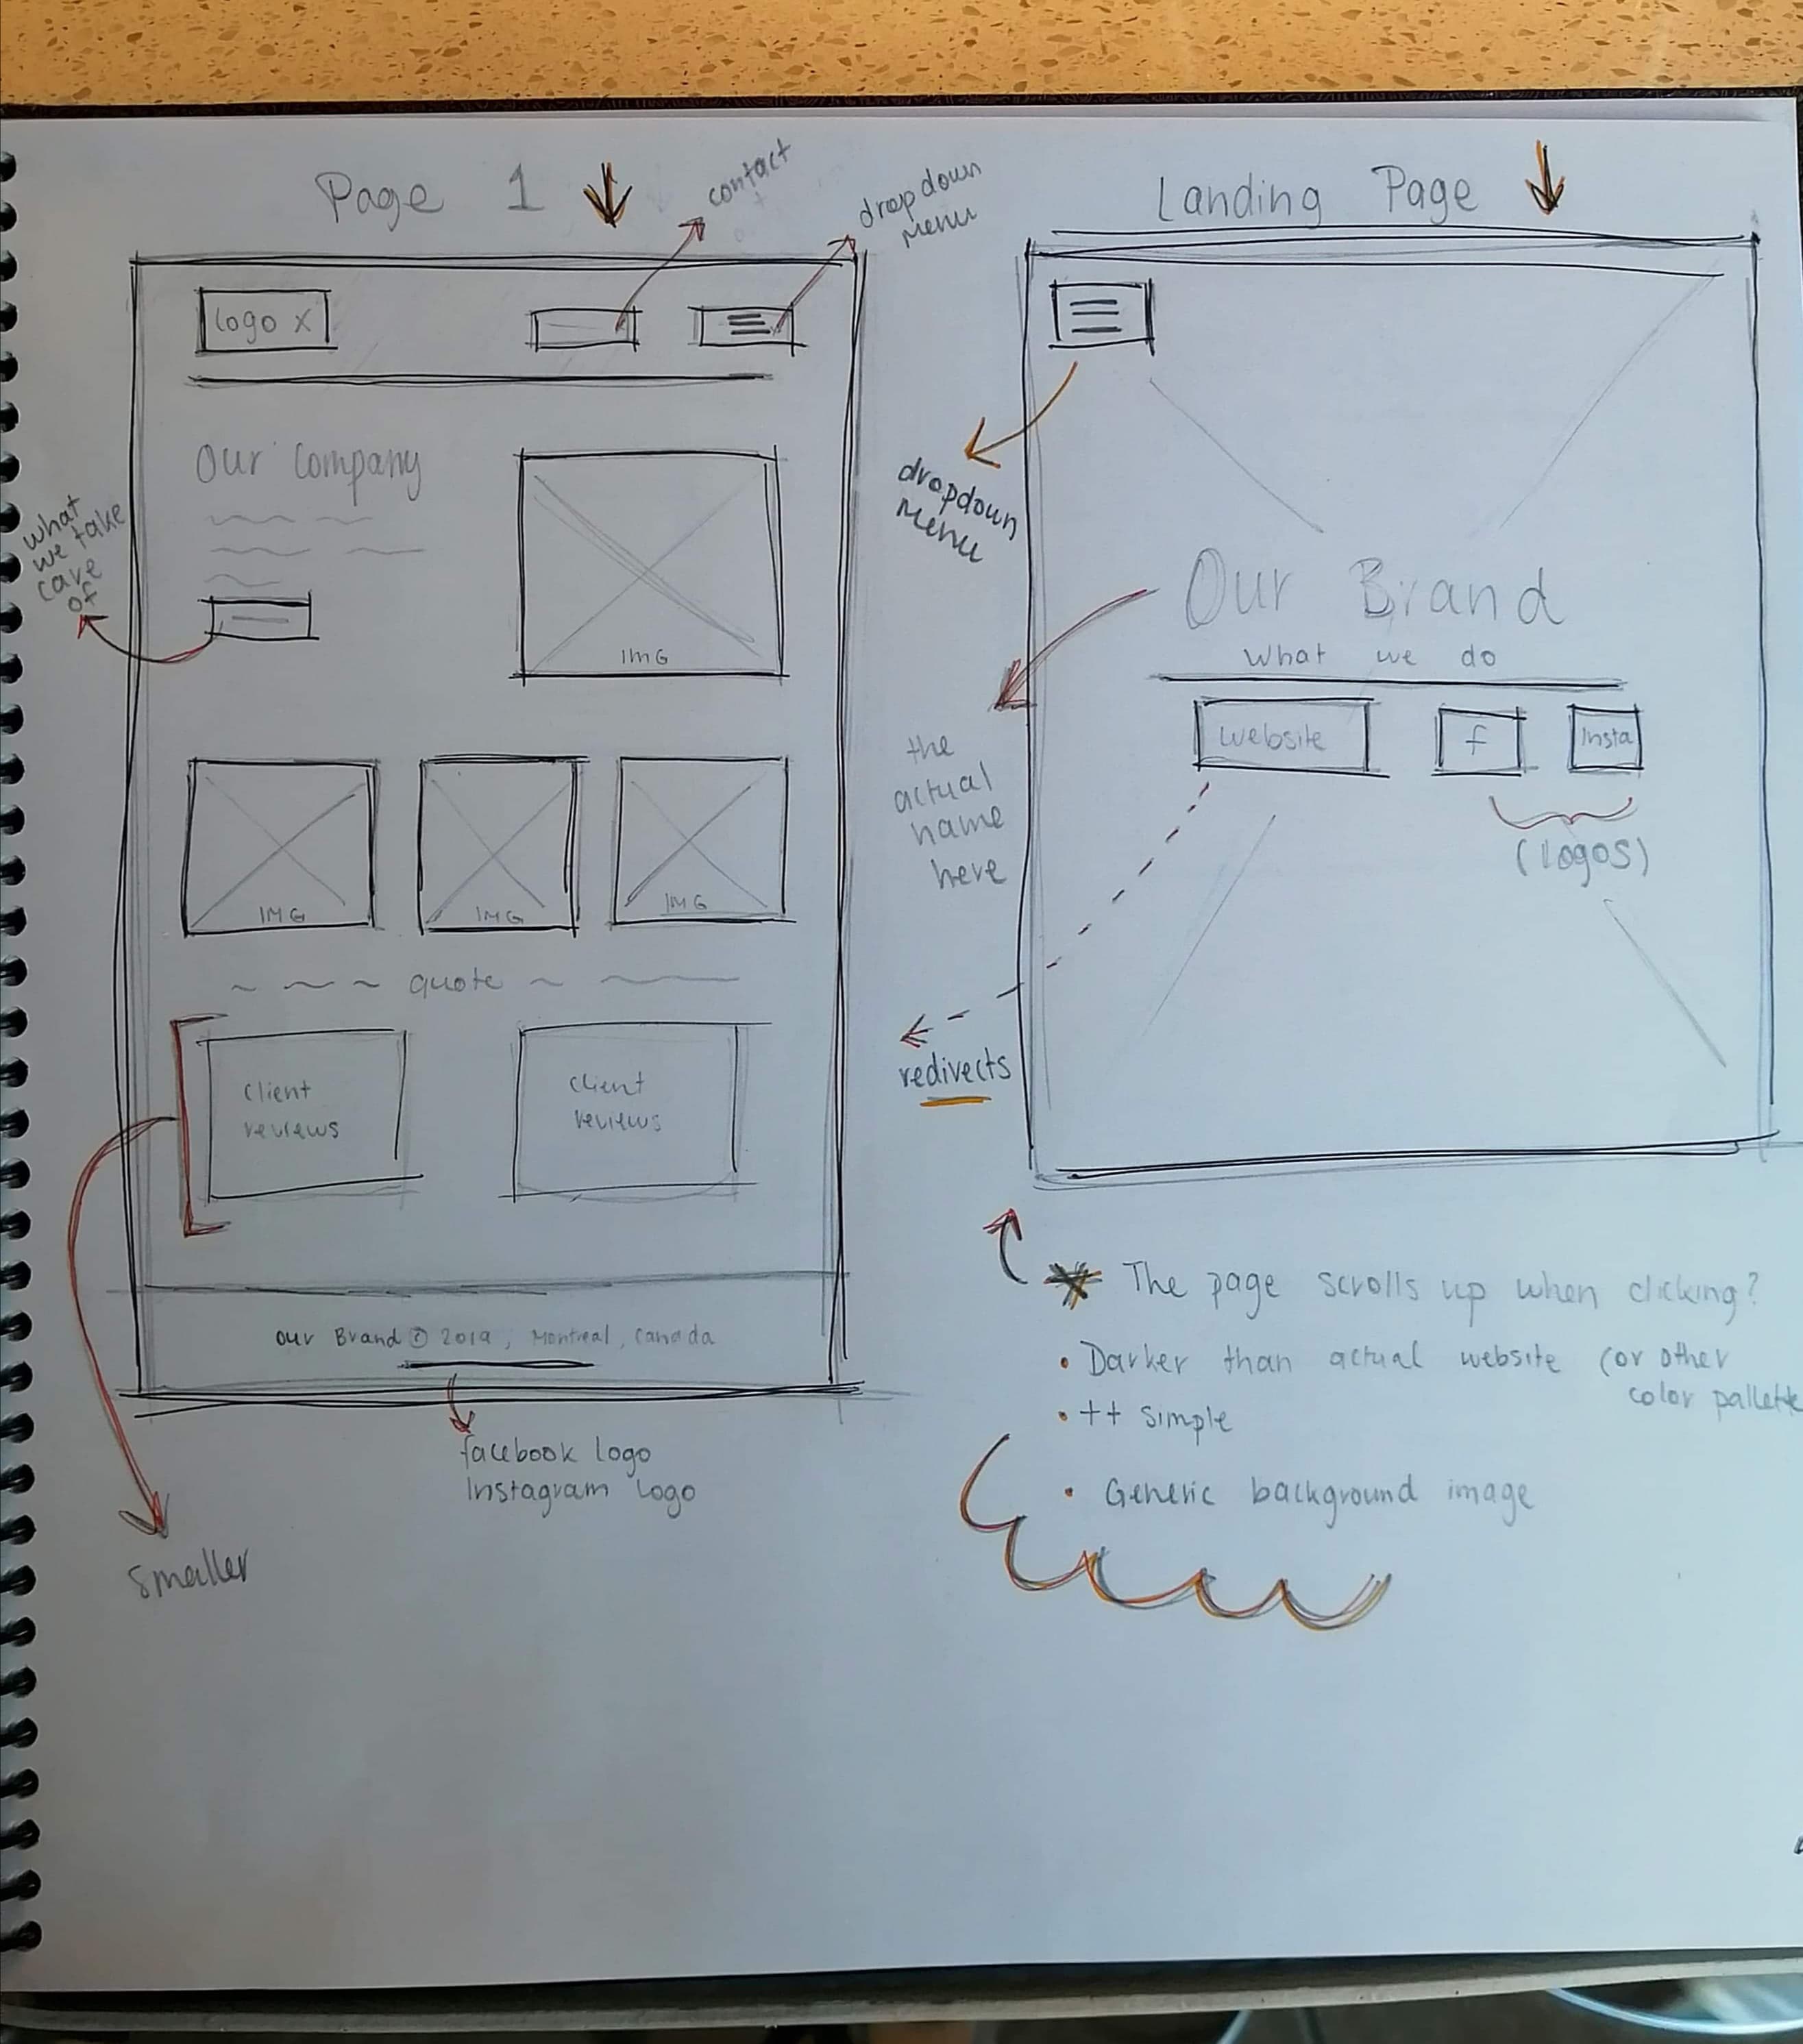 Page 1
contact
dropdown
menu
logo x
Our Company
what
we take
care
of
IMG
IMG
IMG
IMG
quote
client
reviews
client
reviews
Our Brand © 2019, Montreal, Canada
facebook logo
Instagram logo
smaller
Landing Page
dropdown
menu
Our Brand
What we do
website
f
Insta
(logos)
the
actual
name
here
redirects
The page scrolls up when clicking?
• Darker than actual website (or other
color pallette
• ++ simple
• Generic background image